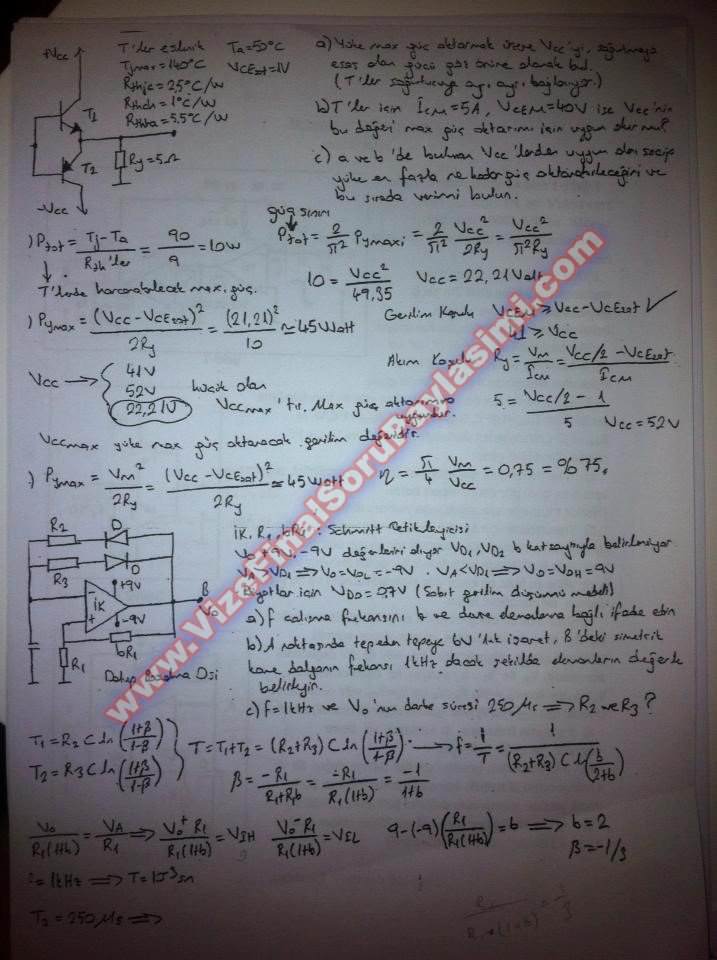 +Vcc
T'ler eşlenik Ta=50°C
Tjmax=140°C
VCEsat=1V
Rthjc=2,5°C/W
Rthch=1°C/W
Rthha=5.5°C/W
T1
T2
Ry=5Ω
-Vcc
a) Yüke max güç aktarmak üzere Vcc'yi, soğutmaya
esas olan gücü göz önüne alarak bul.
(T'ler soğutucuya ayrı ayrı bağlanıyor.)
b) T'ler için ICM=5A, VCEM=40V ise Vcc'nin
bu değeri max güç aktarımı için uygun olur mu?
c) a ve b'de bulunan Vcc'lerden uygun olanı seçip
yüke en fazla ne kadar güç aktarılabileceğini ve
bu sırada verimi bulun.
güç sınırı
) Ptot = (Tj-Ta)/(Rth'ler) = 90/9 = 10W
Ptot = 2/π² Pymaxi = 2/π² Vcc²/2Ry = Vcc²/π²Ry
T'lerde harcanabilecek max. güç.
10 = Vcc²/49,35 Vcc = 22,21 Volt
) Pymax = (Vcc-VCEsat)²/2Ry = (21,21)²/10 ≃ 45 Watt
Gerilim Koşulu VCEM ≥ Vcc-VCEsat ✓
41 ≥ Vcc
Akım Koşulu Ry = Vm/ICM = (Vcc/2 - VCEsat)/ICM
Vcc → { 41V
52V küçük olan
22,21V Vccmax'tır. Max güç aktarımına
uygundur.
5 = (Vcc/2 - 1)/5 Vcc=52V
Vccmax yüke max güç aktaracak gerilim değeridir.
) Pymax = Vm²/2Ry = (Vcc-VCEsat)²/2Ry ≃ 45 Watt
η = π/4 Vm/Vcc = 0,75 = %75.
R2
D
R3
D
+9V
İK
-9V
B
Vo
bR1
R1
İK, R1, bR1 : Schmitt Tetikleyicisi
Vo +9V, -9V değerlerini alıyor VD1, VD2 b katsayısıyla belirleniyor
VA>VD1 ⟹ Vo=VOL=-9V . VA<VD1 ⟹ Vo=VOH=9V
Diyotlar için VDO=0,7V (Sabit gerilim düşümü modeli)
a) f çalışma frekansını b ve devre elemanlarına bağlı ifade edin
b) A noktasında tepeden tepeye 6V'luk işaret, B'deki simetrik
kare dalganın frekansı 1kHz olacak şekilde elemanların değerlerini
belirleyin.
c) f=1kHz ve Vo'nun darbe süresi 250μs ⟹ R2 ve R3?
T1 = R2 C ln((1+β)/(1-β))
T2 = R3 C ln((1+β)/(1-β))
T = T1+T2 = (R2+R3) C ln((1+β)/(1-β)) → f = 1/T = 1/((R2+R3) C ln(b/(2+b)))
β = -R1/(R1+R1b) = -R1/(R1(1+b)) = -1/(1+b)
Vo/(R1(1+b)) = VA/R1 ⟹ Vo⁺R1/(R1(1+b)) = VIH Vo⁻R1/(R1(1+b)) = VIL
9-(-9)(R1/(R1(1+b))) = 6 ⟹ b=2
β=-1/3
= 1kHz ⟹ T=10⁻³sn
T2=250μs ⟹
www.VizeFinalSoruPaylasimi.com